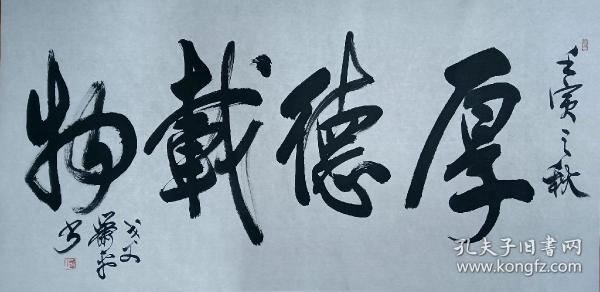 壬寅之秋
厚德載物
孔夫子旧书网
www.kongfz.com